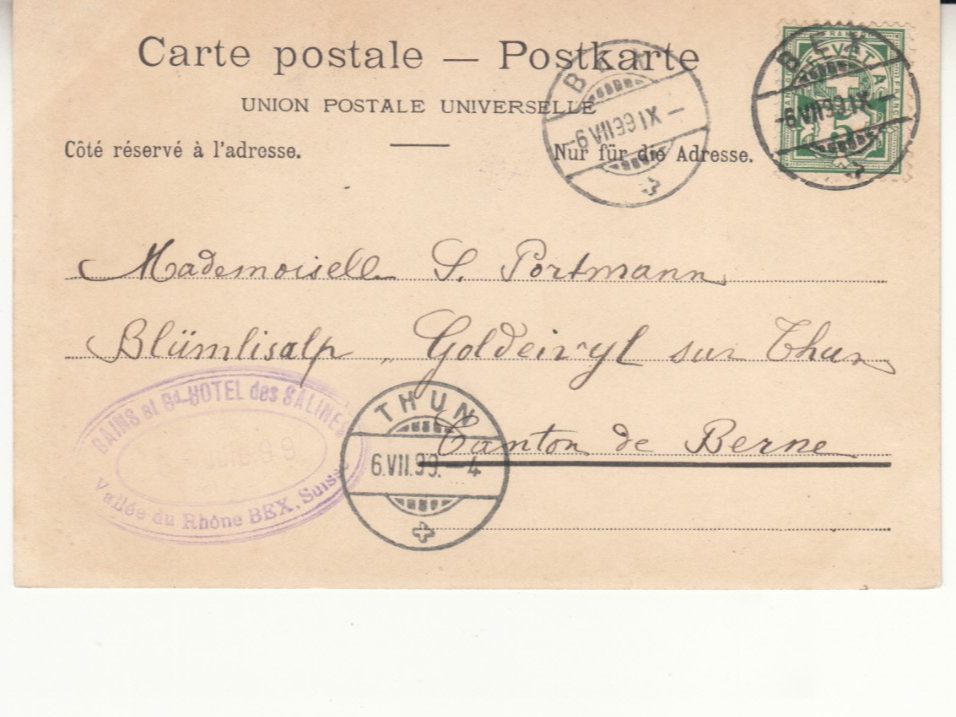 Carte postale — Postkarte
UNION POSTALE UNIVERSELLE
Côté réservé à l'adresse.
Nur für die Adresse.
BEX
-6.VII.99.IX-
BEX
-6.VII.99.IX-
5
Mademoiselle S. Portmann
Blümlisalp, Goldeiwyl sur Thun
Canton de Berne
BAINS et Gd HOTEL des SALINES
Vallée du Rhône BEX, Suisse
THUN
6.VII.99.-4